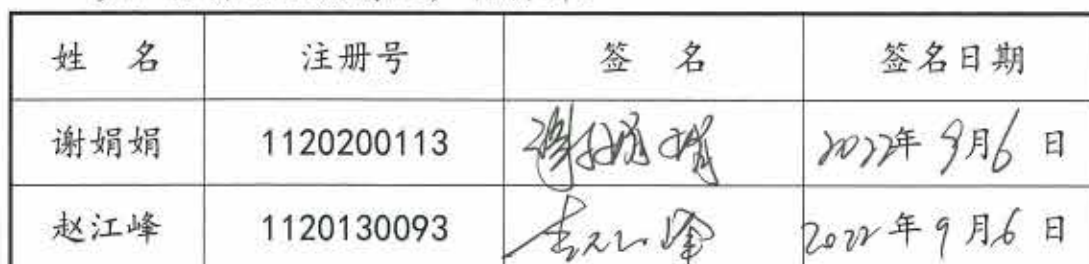 姓 名 注册号 签 名 签名日期
谢娟娟 1120200113 谢娟娟 2022年9月6日
赵江峰 1120130093 赵江峰 2022年9月6日